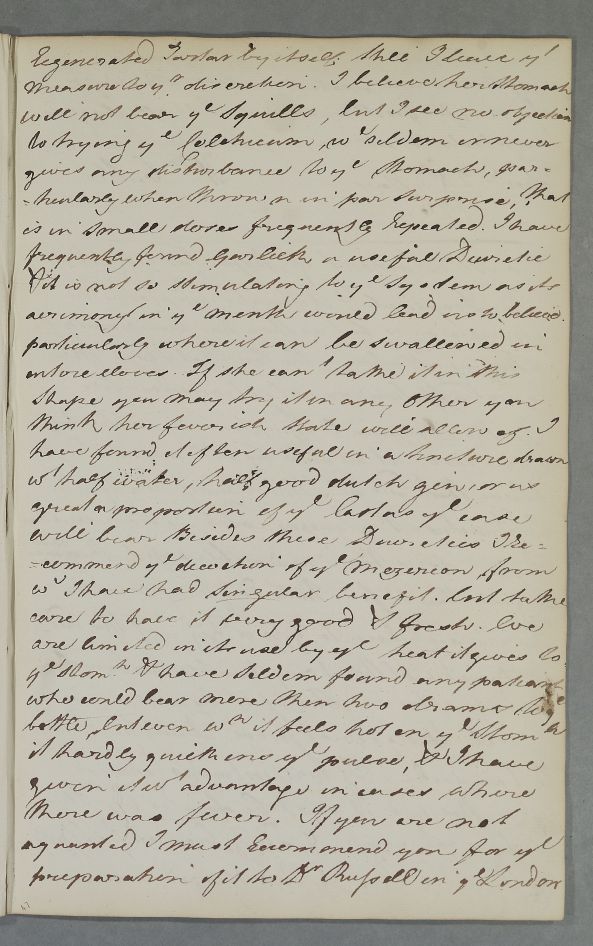 Regenerated Tartar by itself. this I leave ye
measure to yr discretion. I believe her Stomach
will not bear ye Squills, but I see no objection
to trying ye Colchicum, wc seldom or never
gives any disturbance to ye Stomach, par=
=ticularly when thrown in par surprise, that
is in small doses frequently repeated. I have
frequently found Garlick a useful Diuretic
& it is not so stimulating to ye System as its
acrimony in ye mouth would lead us to believe.
particularly where it can be swallowed in
entire cloves. If she can't take it in this
shape you may try it in any other you
think her feverish state will allow of. I
have found it often useful in a tincture drawn
wt half water, half good dutch gin, or as
great a proportion of ye last as ye case
will bear Besides these Diuretics I re=
=commend ye decoction of ye Mezereon, from
wc I have had singular benefit. but take
care to have it very good & fresh. We
are limited in its use by ye heat it gives to
ye Stomh & have seldom found any patient
who could bear more then two drams to ye
bottle, but even wn it feels hot on ye Stomh
it hardly quickens ye pulse, & I have
given it wt advantage in cases where
there was fever. If you are not
aquanted I must Recommend you for ye
preparation of it to Dr Russell in ye London